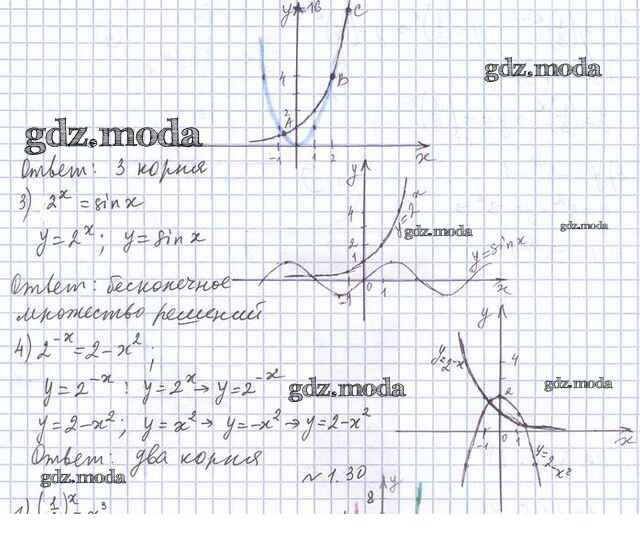 y↑16
C
gdz.moda
4
B
2
A
gdz.moda
-1 1 2 x
Ответ: 3 корня
3) 2^x = sin x
y = 2^x; y = sin x
y
4
2
1
y=2^x
gdz.moda
gdz.moda
y=sin x
-1 0 1 x
Ответ: бесконечное
множество решений
4) 2^-x = 2 - x^2;
y = 2^-x : y = 2^x → y = 2^-x
gdz.moda
y = 2 - x^2; y = x^2 → y = -x^2 → y = 2 - x^2
Ответ: два корня
y
y=2^-x
4
2
gdz.moda
-1 0 1 x
y=2-x^2
gdz.moda
№1.30
8 y
1) (1/)^x = x^3